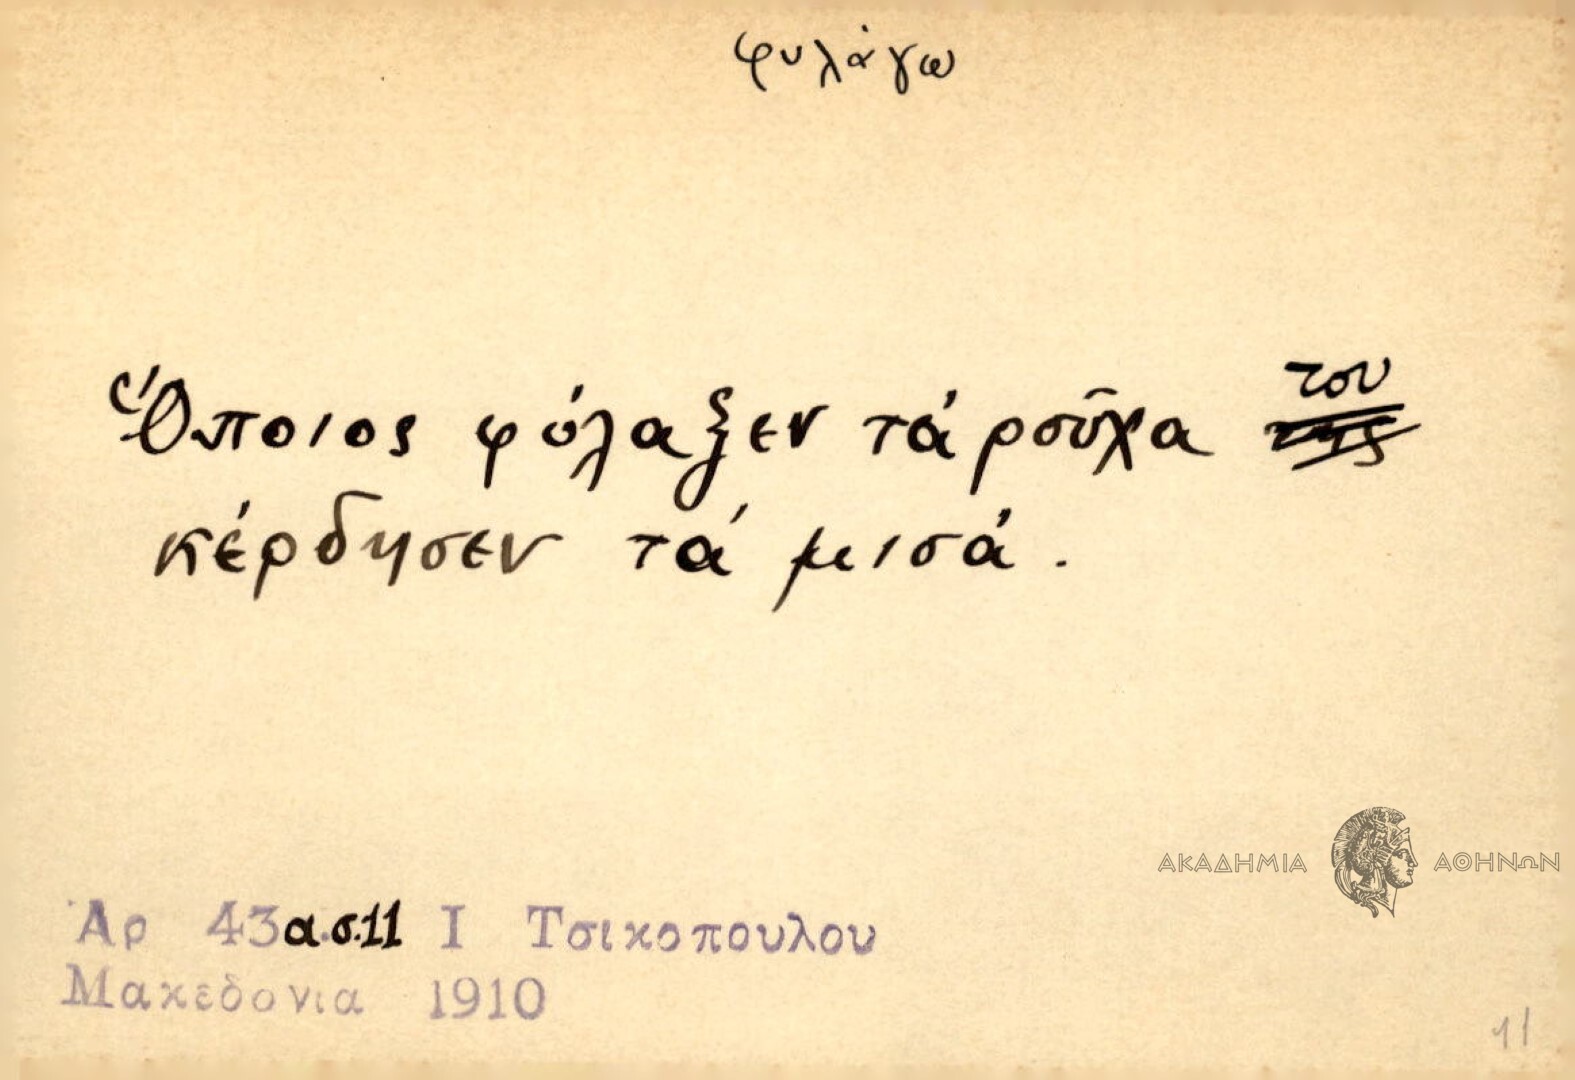 φυλάγω
Ὅποιος φύλαξεν τά ροῦχα του
κέρδησεν τά μισά.
ΑΚΑΔΗΜΙΑ ΑΘΗΝΩΝ
Ἀρ 43α.σ.11 Ι Τσικοπουλου
Μακεδονια 1910
11